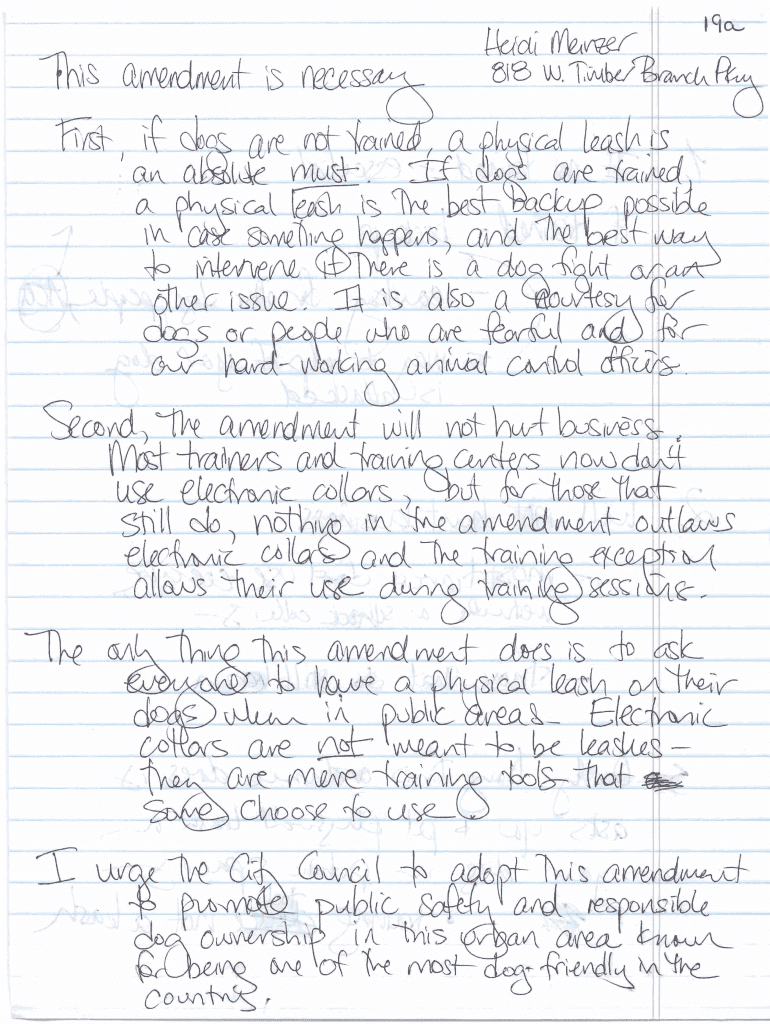 19a
Heidi Meinzer
818 W. Timber Branch Pkwy
This amendment is necessary
First, if dogs are not trained, a physical leash is
an absolute must. If dogs are trained,
a physical leash is the best backup possible
in case something happens, and the best way
to intervene if there is a dog fight or an
other issue. It is also a courtesy for
dogs or people who are fearful and for
our hard-working animal control officers.
Second, the amendment will not hurt business.
Most trainers and training centers now don't
use electronic collars, but for those that
still do, nothing in the amendment outlaws
electronic collars and the training exception
allows their use during training sessions.
The only thing this amendment does is to ask
everyone to have a physical leash on their
dogs when in public areas. Electronic
collars are not meant to be leashes –
they are mere training tools that
some choose to use.
I urge the City Council to adopt this amendment
to promote public safety and responsible
dog ownership in this urban area known
for being one of the most dog-friendly in the
country.